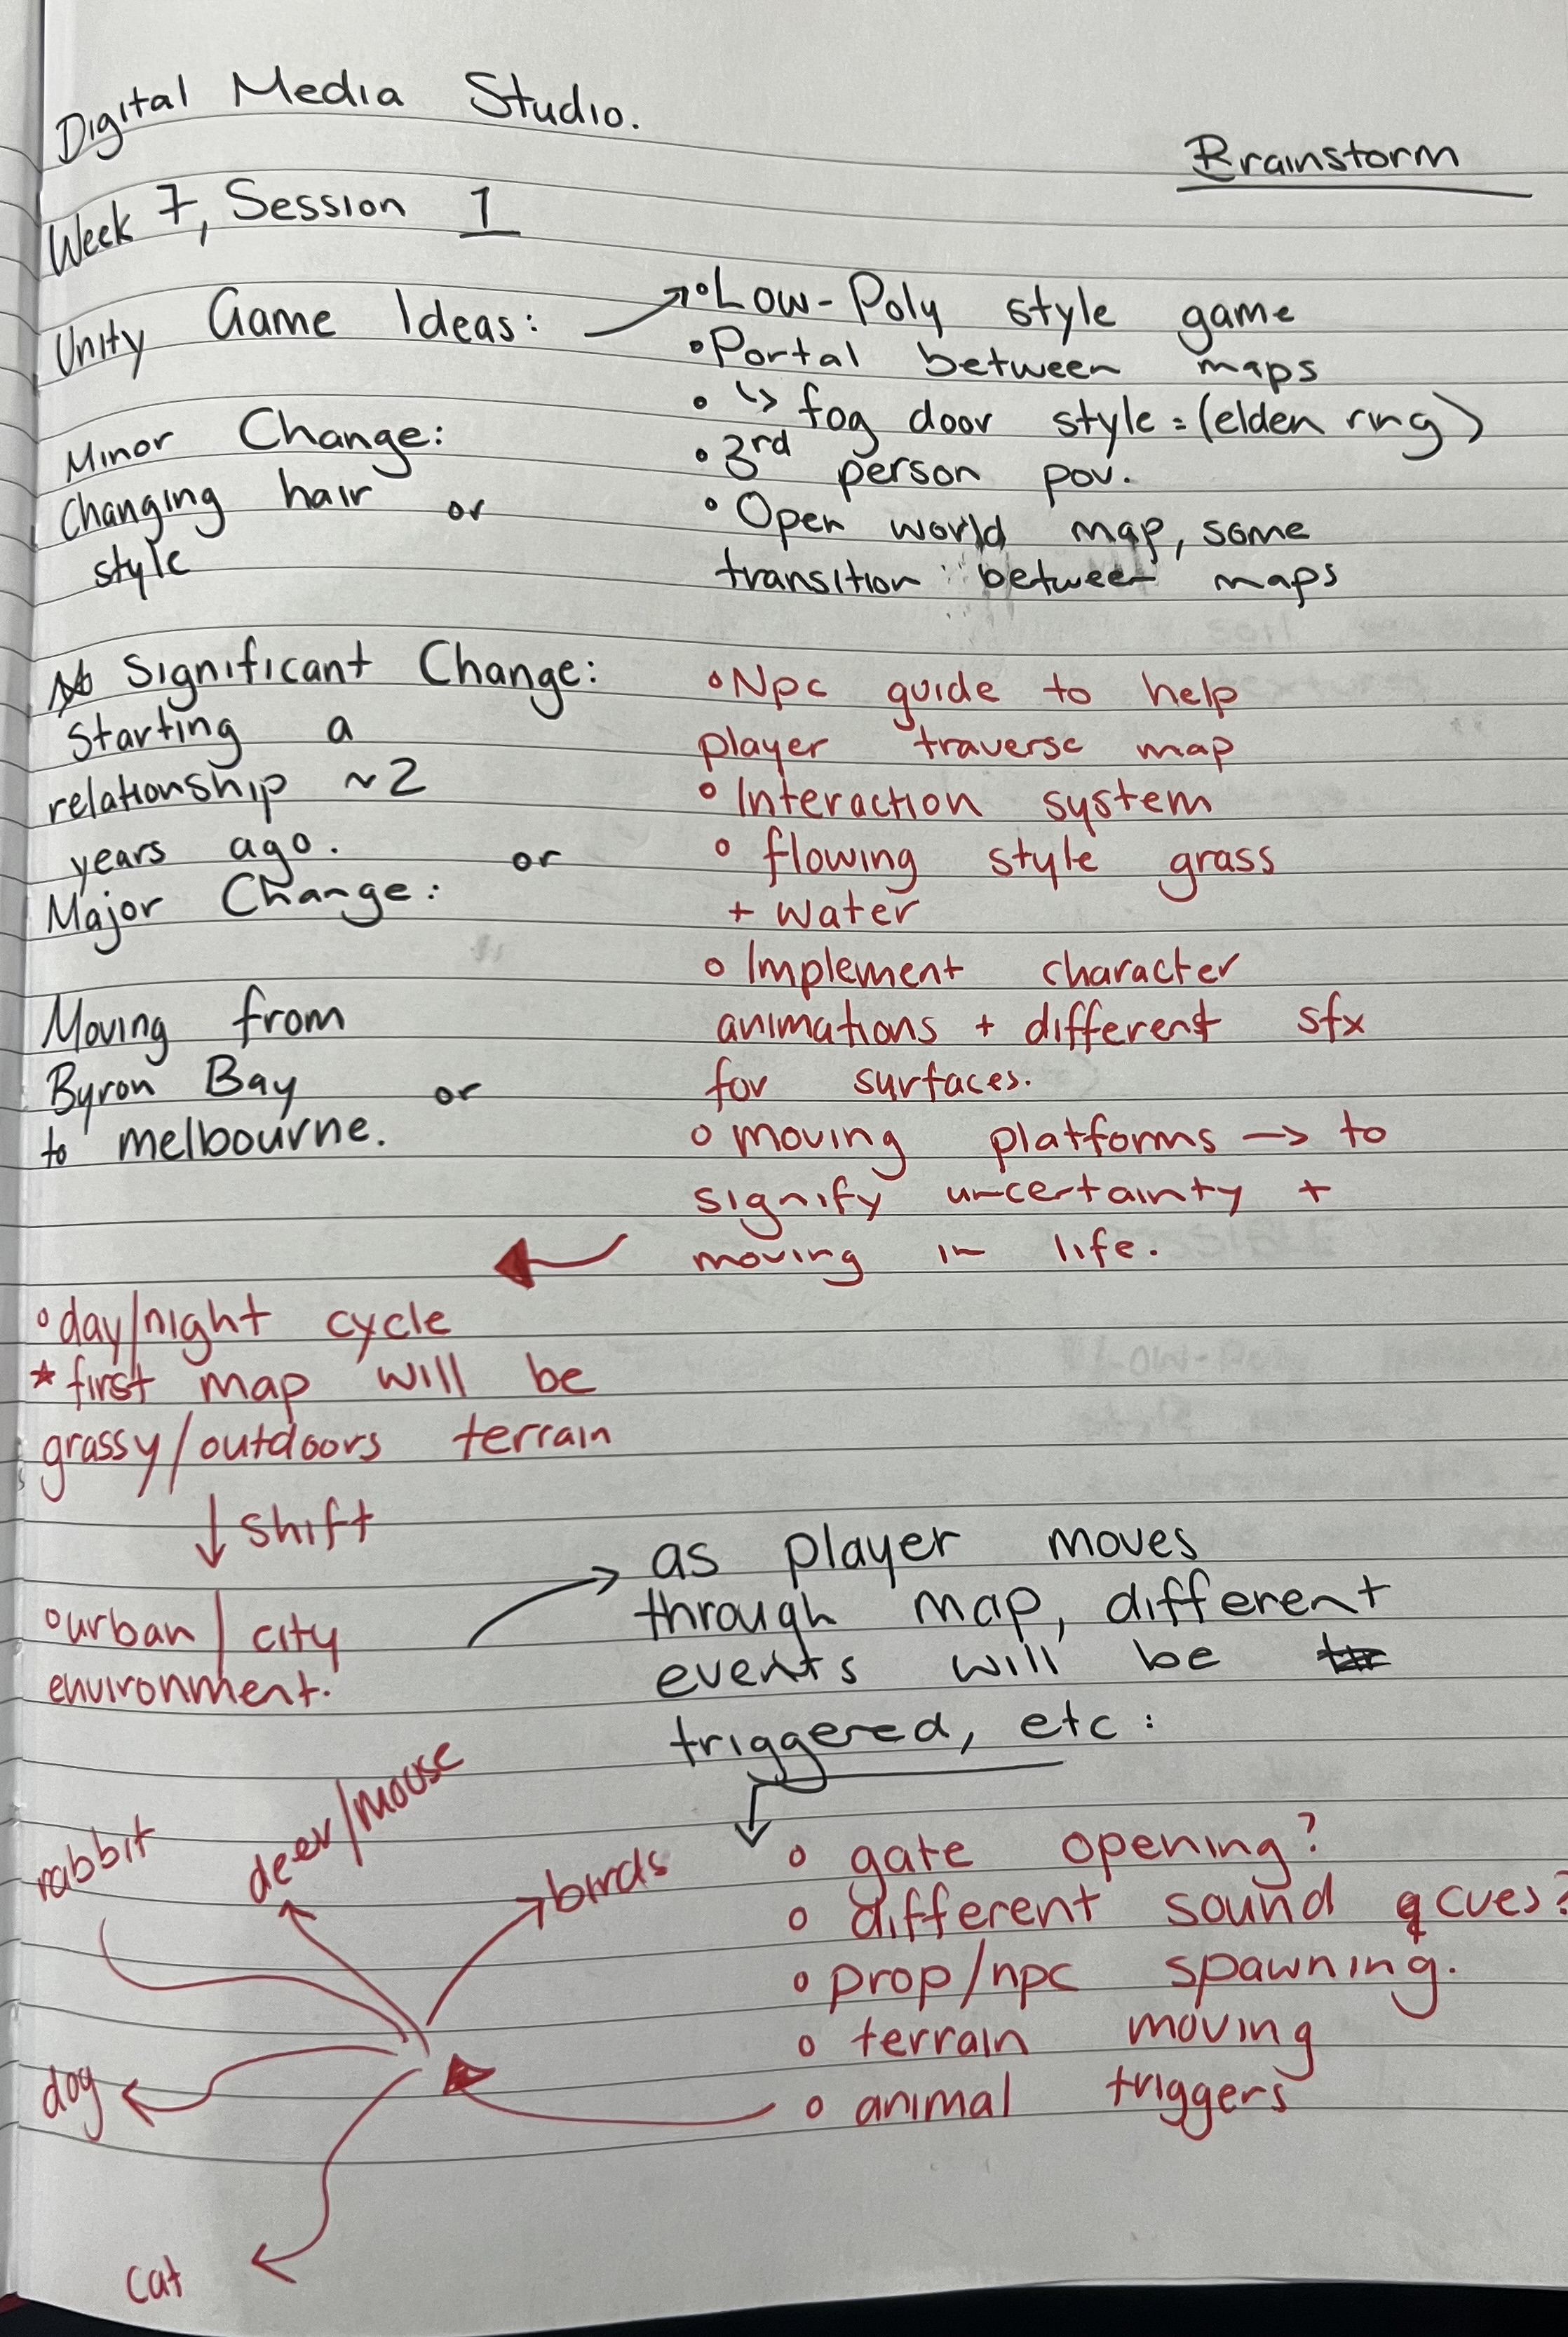 Digital Media Studio.
Brainstorm
Week 7, Session 1
Unity Game Ideas:
Minor Change:
Changing hair or
style
Significant Change:
Starting a
relationship ~2
years ago. or
Major Change:
Moving from
Byron Bay or
to melbourne.
• Low-Poly style game
• Portal between maps
• ↳ fog door style = (elden ring)
• 3rd person pov.
• Open world map, some
transition between maps
• Npc guide to help
player traverse map
• Interaction system
• flowing style grass
+ water
• Implement character
animations + different sfx
for surfaces.
• moving platforms → to
signify uncertainty +
moving in life.
• day/night cycle
* first map will be
grassy/outdoors terrain
↓ shift
• urban/city
environment.
as player moves
through map, different
events will be
triggered, etc:
• gate opening?
• different sound cues?
• prop/npc spawning.
• terrain moving
• animal triggers
rabbit
deer/mouse
birds
dog
cat